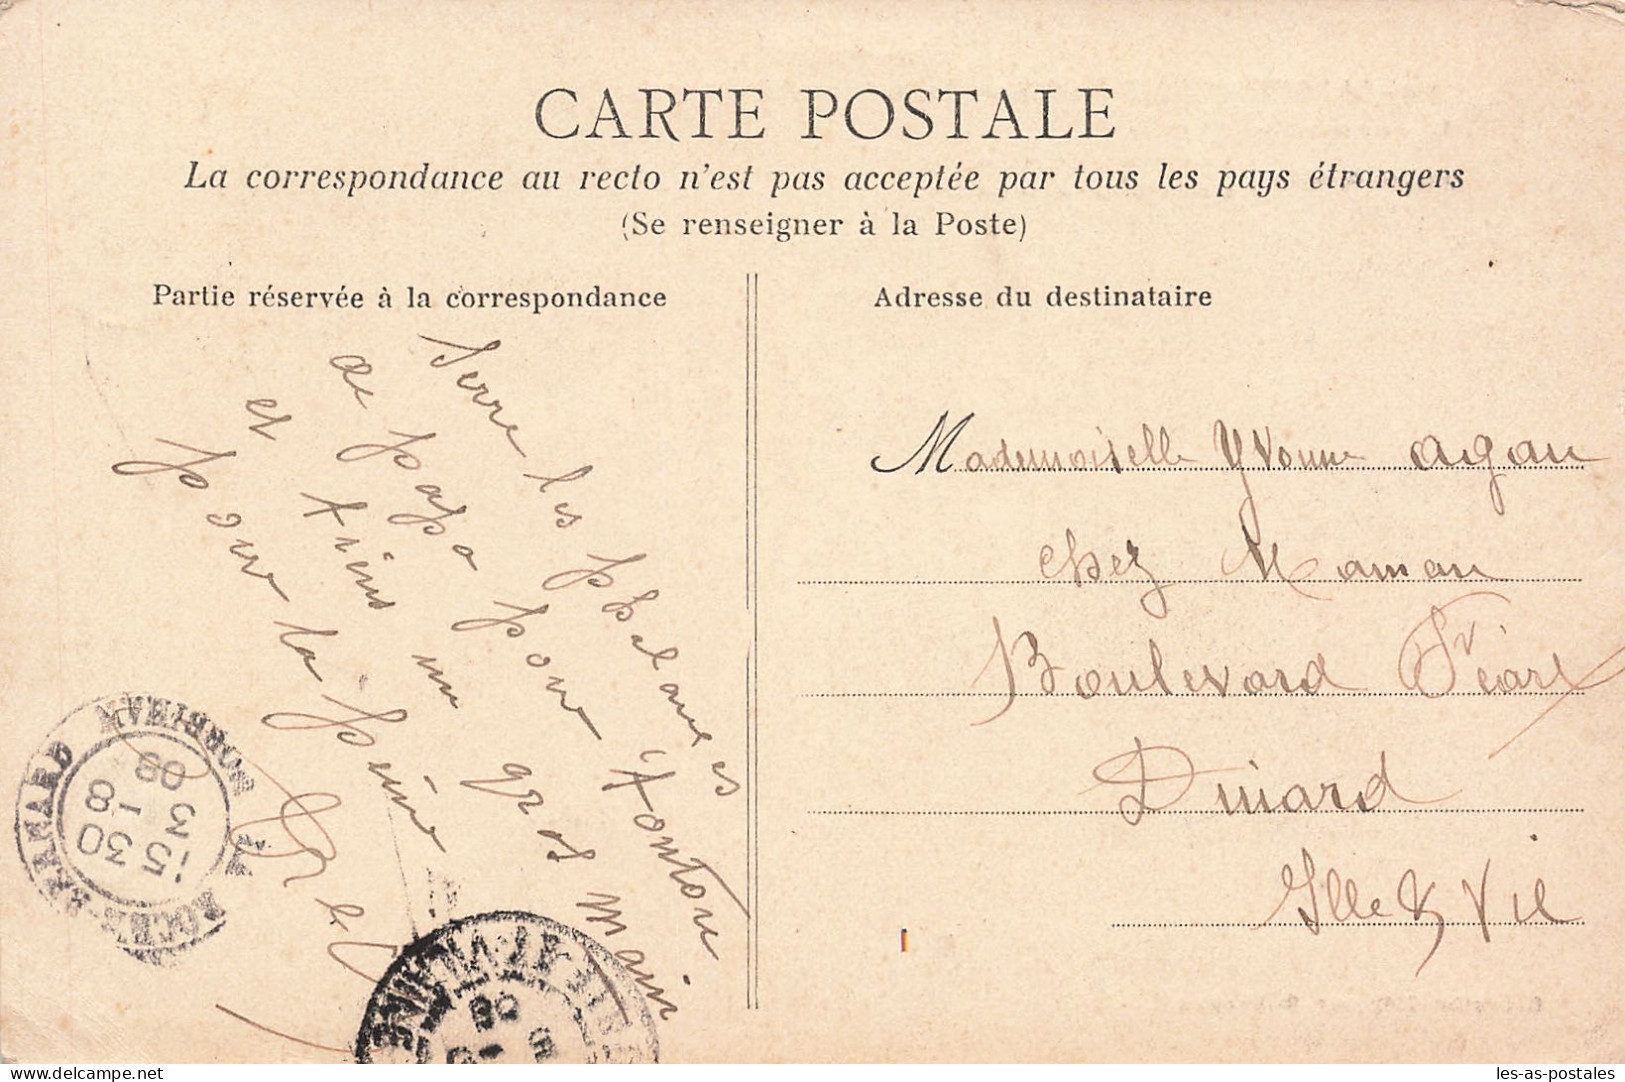 CARTE POSTALE
La correspondance au recto n'est pas acceptée par tous les pays étrangers
(Se renseigner à la Poste)
Partie réservée à la correspondance
Serre les phalanges
de papa pour tonton
et tiens un gros main
pour la
Adresse du destinataire
Mademoiselle Yvonne Agan
chez Maman
Boulevard Féart
Dinard
Ille & Vil
ROCHE-BERNARD MORBIHAN
15 30
3 - 8
08
ILLE-ET-VILAINE
08
delcampe.net
les-as-postales